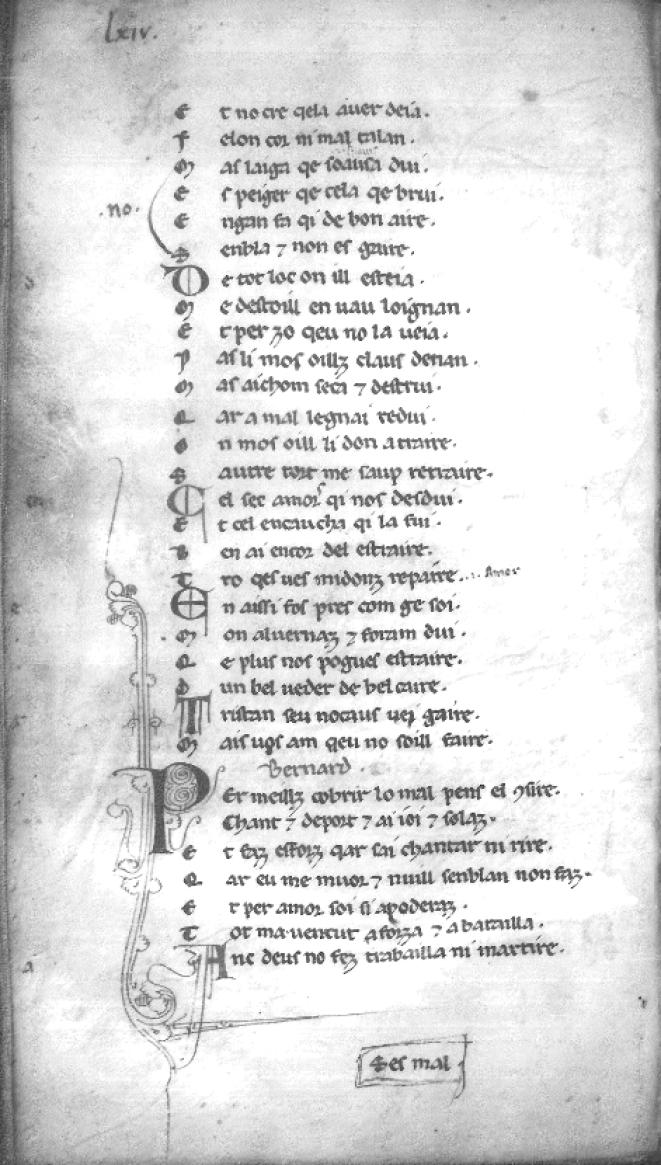 lxiv.
E t no cre qela auer deia.
F elon cor ni mal talan.
M as laiga qe soausa dui.
E s peiger qe cela qe brui.
E ngan fa qi de bon aire.
.no.
S enbla ⁊ non es gaire.
D e tot loc on ill esteia.
M e destoill en uau loignan.
E t per zo qeu no la ueia.
P as li mos oillz claus denan.
M as aichom seca ⁊ destrui.
Q ar a mal legnai redui.
O n mos oill li don atraire.
S autre tort me saup retraire.
C el sec amors qi nos desdui.
E t cel encaucha qi la fui.
B en ai encor del estraire.
T ro qes ues midonz repaire. Amor
E n aissi fos pres com ge soi.
M on aluernaz ⁊ foram dui.
Q e plus nos pogues estraire.
D un bel ueder de bel caire.
T ristan seu nocaus uei gaire.
M ais uos am qeu no soill faire.
Bernard.
P Er meillz cobrir lo mal pens el ꝯsire.
Chant ⁊ deport ⁊ ai ioi ⁊ solaz.
E t faz efforz qar sai chantar ni rire.
Q ar eu me muor ⁊ nuill senblan non faz.
E t per amor soi si apoderaz.
T ot ma uencut a forza ⁊ a batailla.
A nc deus no fez trabailla ni martire.
Ses mal